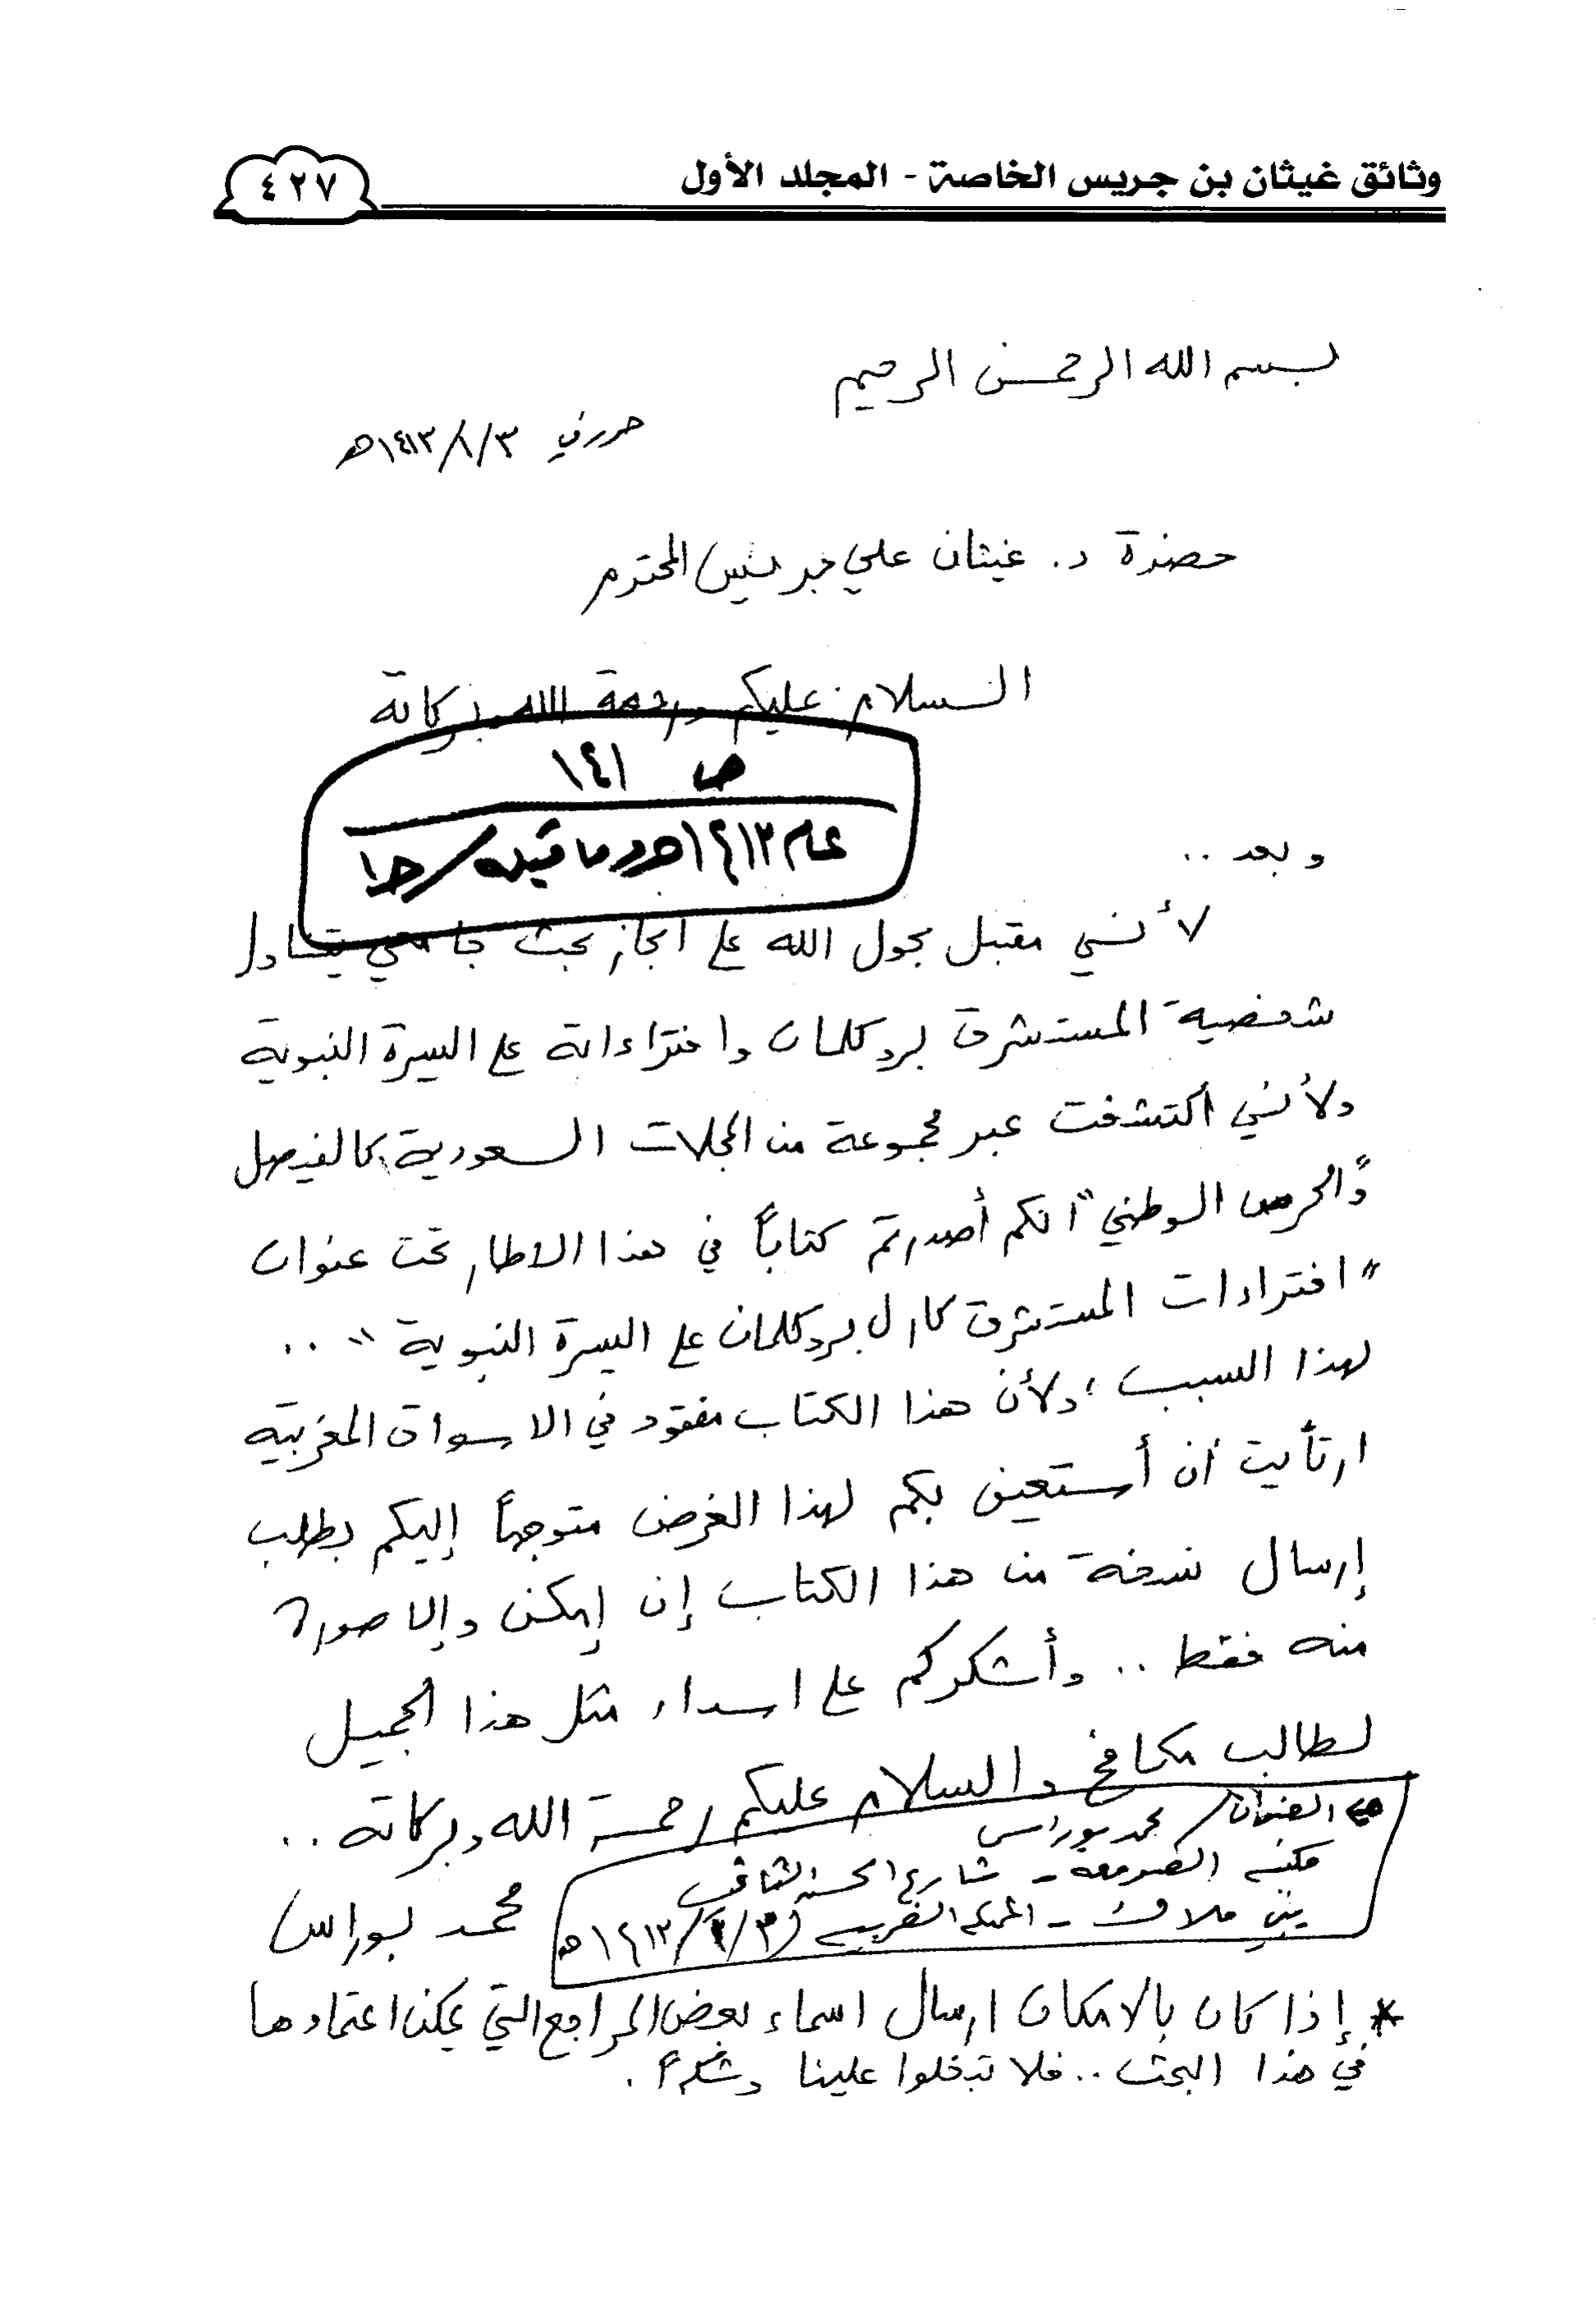 وثائق غيثان بن جريس الخاصة - المجلد الأول
٤٢٧
بسم الله الرحمن الرحيم
حرر في ٣/١/١٤١٣هـ
حضرة د. غيثان علي جريس المحترم
السلام عليكم ورحمة الله وبركاته
ص ١٤١
عام ١٤١٣هـ وما قبله / ج١
وبعد ..
لأنني مقبل بحول الله على انجاز بحث جامعي يتناول
شخصية المستشرق بروكلمان وافتراءاته على السيرة النبوية
ولأنني اكتشفت عبر مجموعة من المجلات السعودية كالفيصل
و"الحرس الوطني" انكم أصدرتم كتاباً في هذا الاطار تحت عنوان
"افتراءات المستشرق كارل بروكلمان على السيرة النبوية" ..
لهذا السبب، ولأن هذا الكتاب مفقود في الاسواق المغربية
ارتأيت أن أستعين بكم لهذا الغرض متوجهاً إليكم بطلب
إرسال نسخة من هذا الكتاب إن امكن وإلا صورة
منه فقط .. وأشكركم على اسداء مثل هذا الجميل
لطالب مكافح والسلام عليكم ورحمة الله وبركاته ..
العنوان / محمد بوراس
مكتبة الصومعة - شارع الحسن الثاني
بني ملال - المملكة المغربية
محمد بوراس
* إذا كان بالامكان ارسال اسماء بعض المراجع التي يمكن اعتمادها
في هذا البحث .. فلا تبخلوا علينا وشكراً.